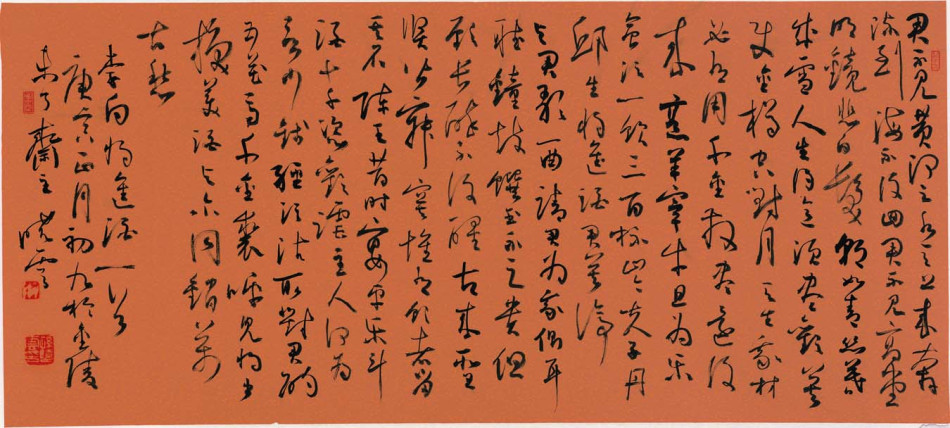 君不見黃河之水天上來奔
流到海不復回君不見高堂
明鏡悲白髮朝如青絲暮
成雪人生得意須盡歡莫
使金樽空對月天生我材
必有用千金散盡還復
來烹羊宰牛且為樂
會須一飲三百杯岑夫子丹
邱生將進酒君莫停
與君歌一曲請君為我側耳
聽鐘鼓饌玉不足貴但
願長醉不復醒古來聖
賢皆寂寞惟有飲者留
其名陳王昔時宴平樂斗
酒十千恣歡謔主人何為
言少錢徑須沽取對君酌
五花馬千金裘呼兒將出
換美酒與爾同銷萬
古愁
李白將進酒一首
庚寅正月初九於金陵
未了齋主曉雲